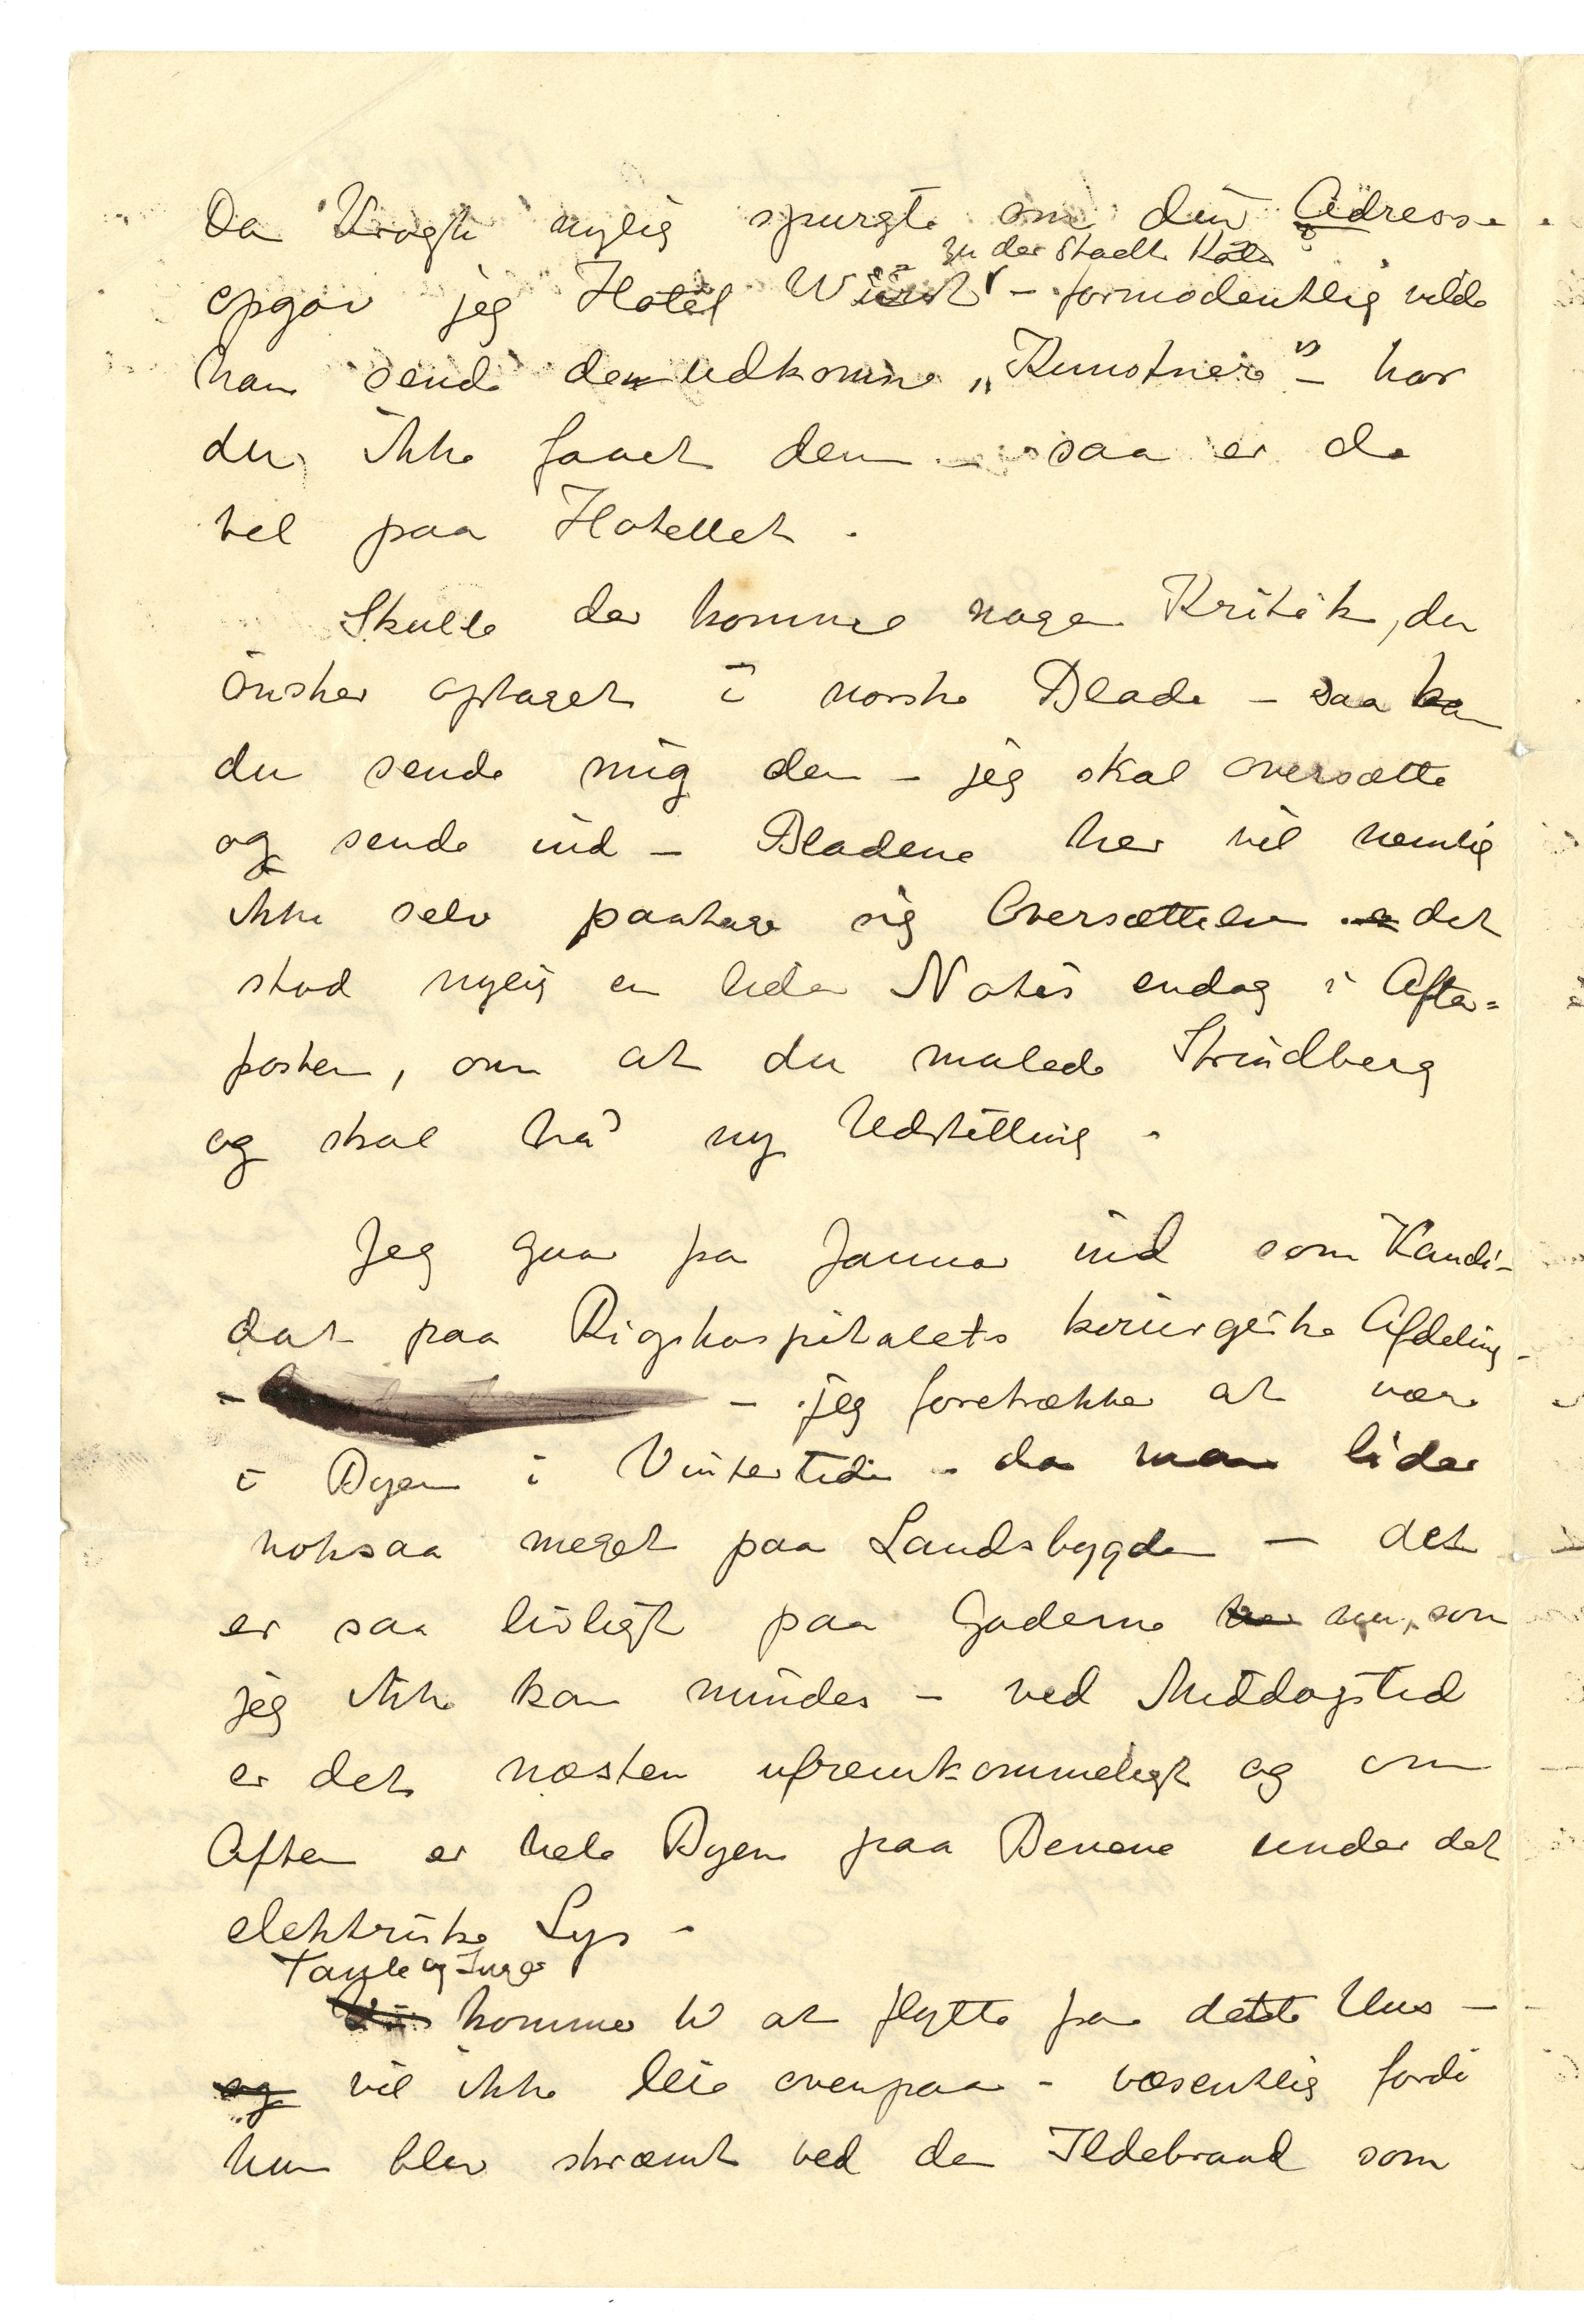 Da Krogh nylig spurgte om din Adresse
zu der Stadt Köln
opgav jeg Hotel – formodentlig vilde
han sende den udkomne „Kunstnere“ – har
du ikke faaet den – saa er de
vel paa Hotellet.
Skulle der komme nogen Kritik, du
ønsker optaget i norske Blade – saa kan
du sende mig den – jeg skal oversætte
og sende ind – Bladene her vil nemlig
ikke selv paatage sig Oversættelsen det
stod nylig en liden Notis endog i Aften=
posten, om at du malede Strindberg
og skal ha' ny Udstilling.
Jeg gaar fra Januar ind som Kandi-
dat paa Rigshospitalets kirurgiske Afdeling –
– – jeg foretrækker at være
i Byen i Vintertiden – da man lider
noksaa meget paa Landsbygden – det
er saa livligt paa Gaderne her nu, som
jeg ikke kan mindes – ved Middagstid
er det næsten ufremkommeligt og om
Aften er hele Byen paa Benene under det
elektriske Lys –
Tante og Inger
kommer til at flytte fra dette Hus –
og vil ikke leie ovenpaa – væsentlig fordi
hun blev skræmt ved den Ildebrand som